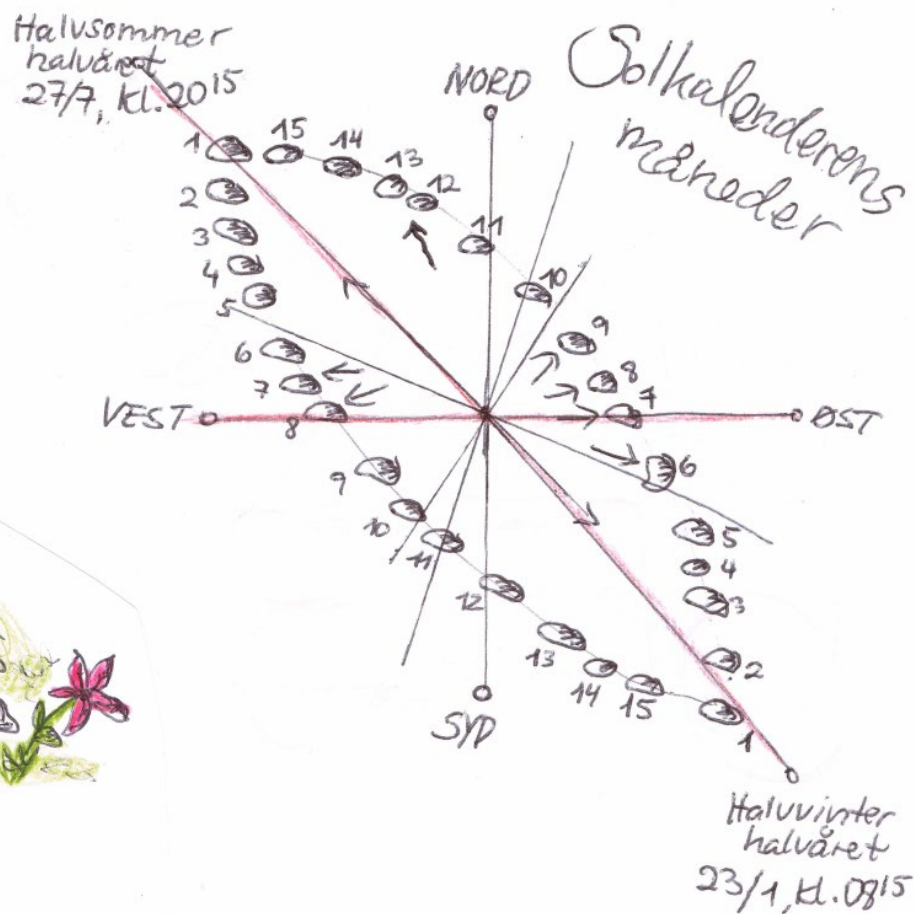 Halvsommer
halvåret
27/7, kl. 20¹⁵
Solkalenderens
måneder
NORD
1
15
14
13
12
11
10
9
8
7
6
5
4
3
2
2
3
4
5
6
7
8
9
10
11
12
13
14
15
1
VEST
ØST
SYD
Halvvinter
halvåret
23/1, kl. 08¹⁵